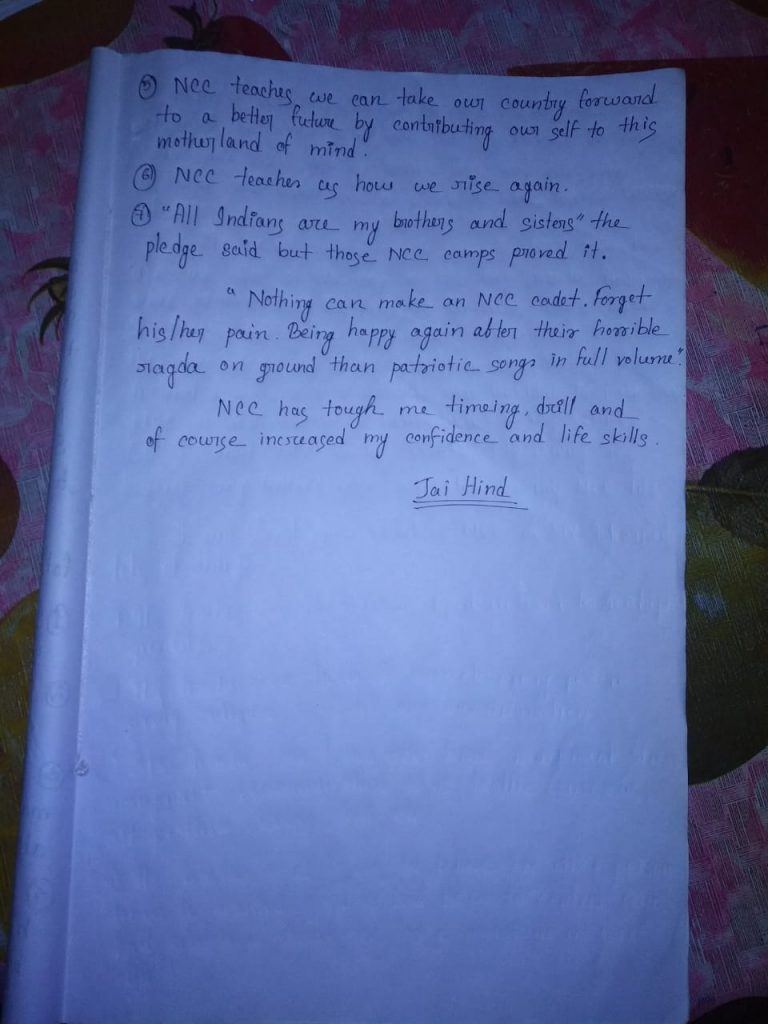 ⑤ NCC teaches we can take our country forward
to a better future by contributing our self to this
motherland of mind.
⑥ NCC teaches us how we rise again.
⑦ "All Indians are my brothers and sisters" the
pledge said but those NCC camps proved it.
" Nothing can make an NCC cadet. Forget
his/her pain. Being happy again abter their horrible
ragda on ground than patriotic songs in full volume".
NCC has tough me timeing, drill and
of course increased my confidence and life skills.
Jai Hind